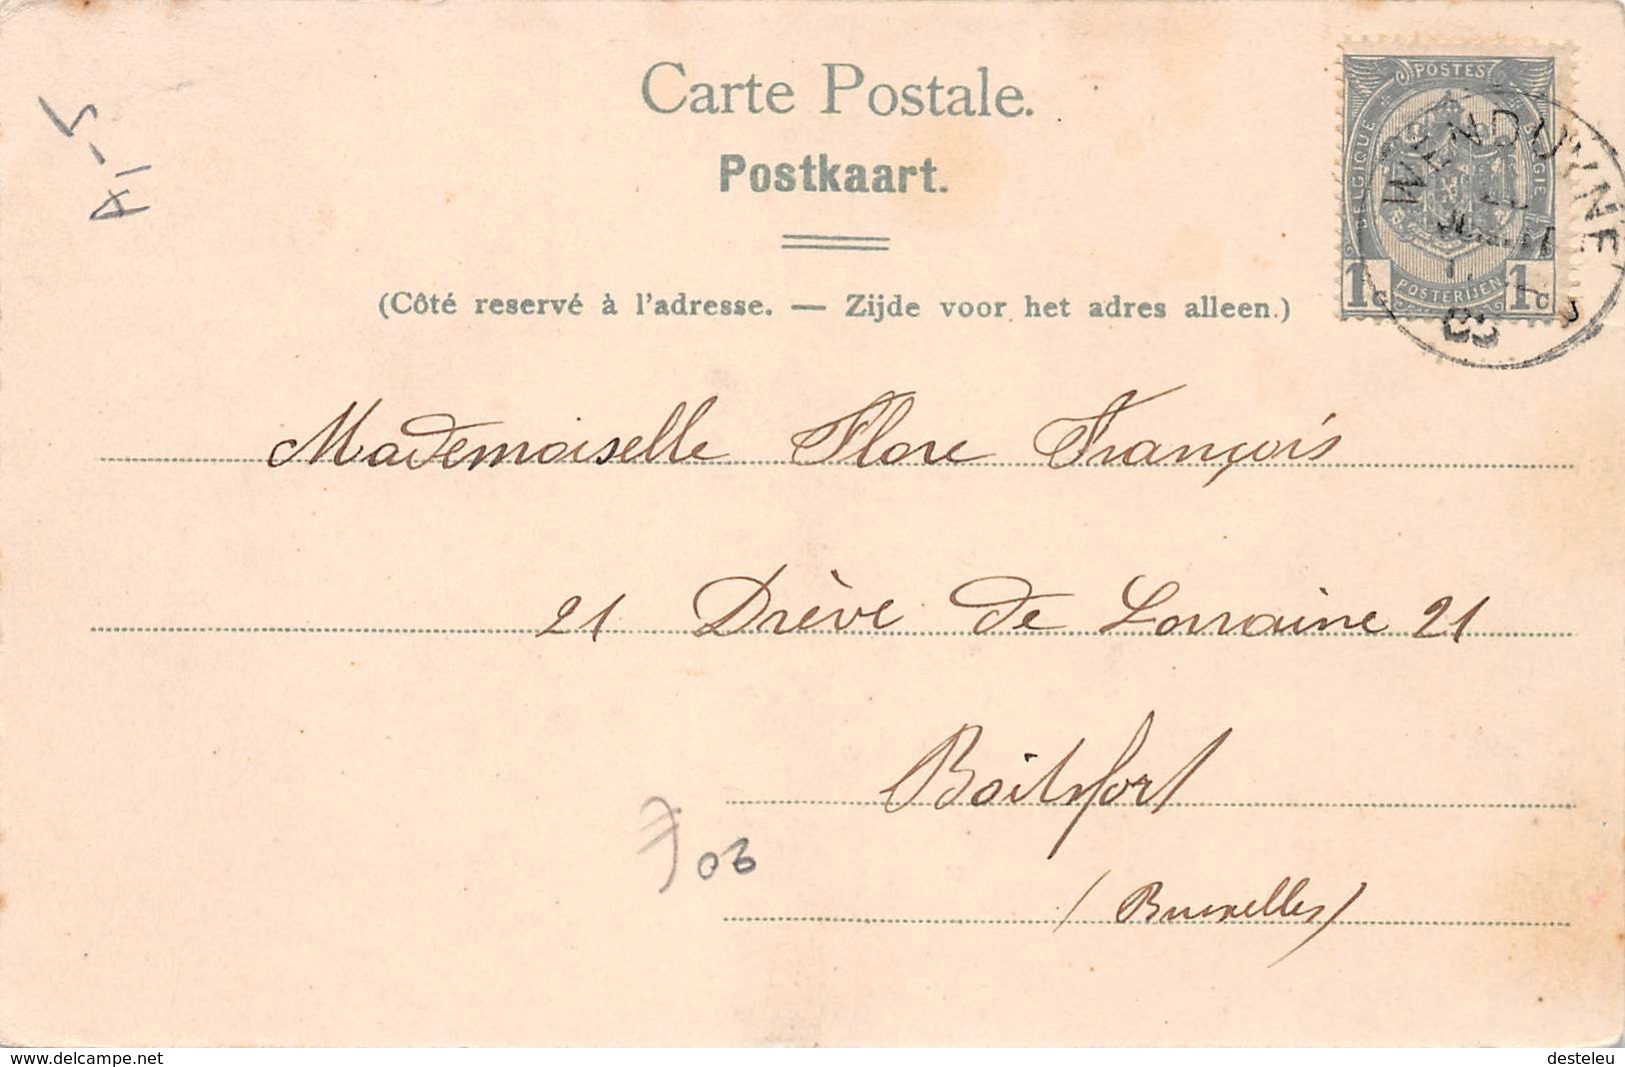 Carte Postale.
Postkaart.
(Côté reservé à l'adresse. — Zijde voor het adres alleen.)
POSTES
BELGIQUE BELGIE
1c POSTERIJEN 1c
WENDUYNE
A1-5
Mademoiselle Flore François
21 Drève de Lorraine 21
Boitsfort
(Bruxelles)
www.delcampe.net
desteleu